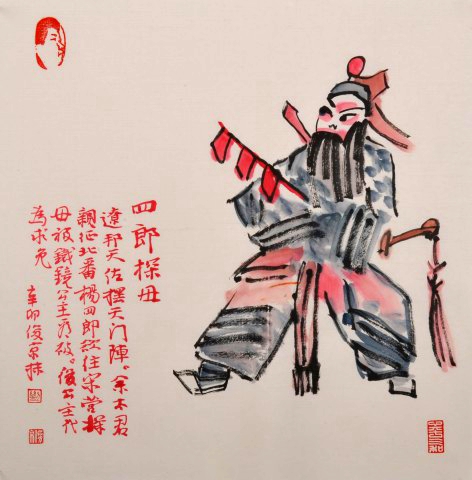 四郎探母
遼邦天佐擺天门陣。佘太君
親征北番楊四郎欲往宋营探
母被鐵鏡公主乃破。後公主代
為求免
辛卯俊京抹